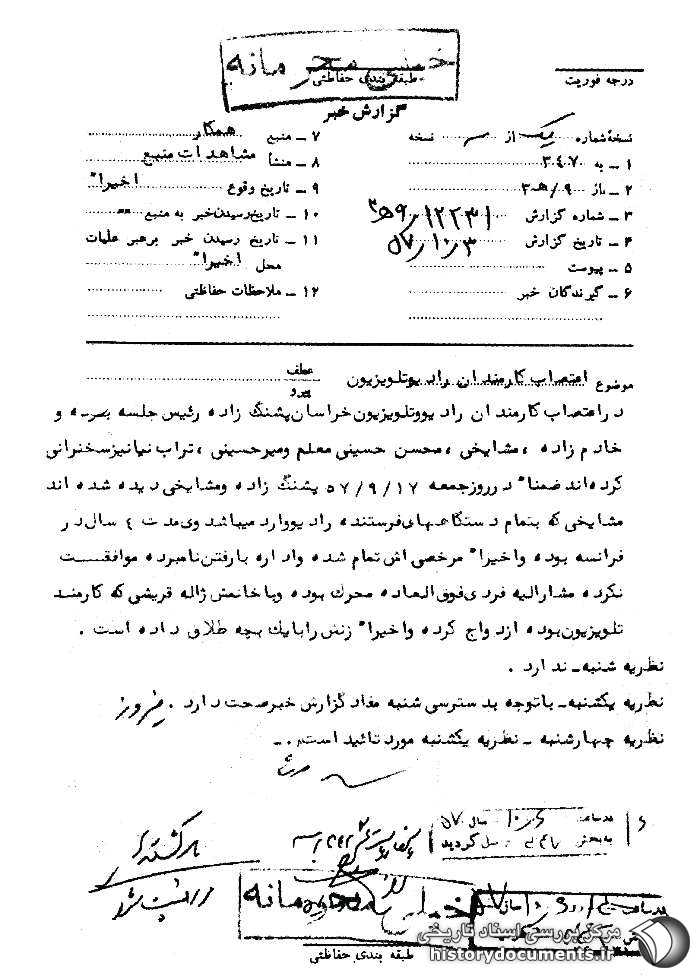 خیلی محرمانه
طبقه بندی حفاظتی
درجه فوریت
گزارش خبر
نسخهٔ شماره یک از سه نسخه
۱ ـ به ۳۴۰۷
۲ ـ از ۹/ه۳
۳ ـ شماره گزارش ۱۲۲۳۱/۹ه۳
۴ ـ تاریخ گزارش ۵۷/۱۰/۳
۵ ـ پیوست
۶ ـ گیرندگان خبر
۷ ـ منبع همکار
۸ ـ منشأ مشاهدات منبع
۹ ـ تاریخ وقوع اخیراً
۱۰ ـ تاریخ رسیدن خبر به منبع ""
۱۱ ـ تاریخ رسیدن خبر برهبر عملیات
محل اخیراً
۱۲ ـ ملاحظات حفاظتی
موضوع اعتصاب کارمندان رادیوتلویزیون
عطف
پیرو
در اعتصاب کارمندان رادیووتلویزیون خراسان پشنگ زاده رئیس جلسه بوده و
خادم زاده ، مشایخی ، محسن حسینی معلم ومیرحسینی ، تراب نیا نیز سخنرانی
کرده‌اند ضمناً در روز جمعه ۵۷/۹/۱۷ پشنگ زاده ومشایخی دیده شده اند
مشایخی که بتمام دستگاههای فرستنده رادیو وارد میباشد وی مدت ٤ سال در
فرانسه بوده واخیراً مرخصی اش تمام شده واداره بارفتن نامبرده موافقت
نکرده مشارالیه فردی فوق العاده محرك بوده وباخانمش ژاله قریشی که کارمند
تلویزیون بوده ازدواج کرده واخیراً زنش رابایك بچه طلاق داده است .
نظریه شنبه ـ ندارد .
نظریه یکشنبه ـ باتوجه بدسترسی شنبه مفاد گزارش خبر صحت دارد . فیروز
نظریه چهارشنبه ـ نظریه یکشنبه مورد تائید است . ـ
در ساعت سال ۵۷
به بخش گردید
خیلی محرمانه
طبقه بندی حفاظتی
مرکز بررسی اسناد تاریخی
historydocuments.ir